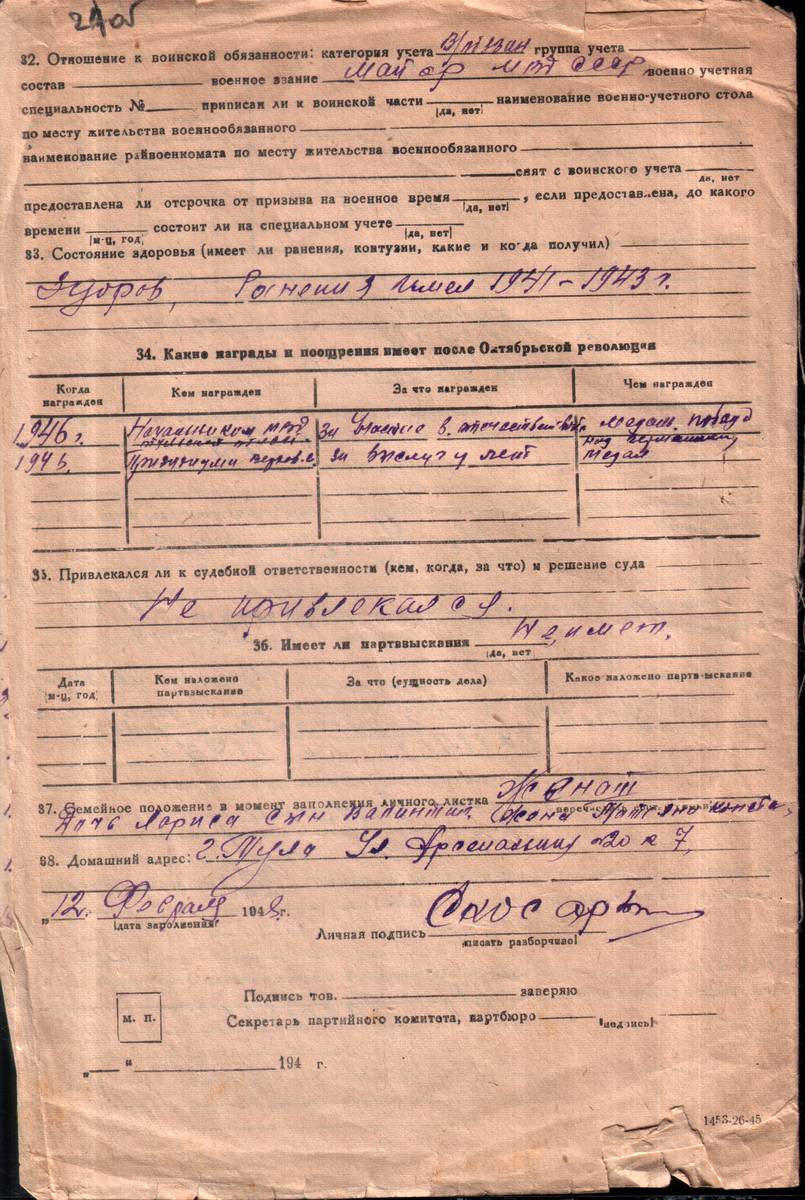 32. Отношение к воинской обязанности: категория учета группа учета
состав военное звание Майор МВД СССР военно учетная
специальность № приписан ли к воинской части наименование военно-учетного стола
|да, нет|
по месту жительства военнообязанного
наименование райвоенкомата по месту жительства военнообязанного
снят с воинского учета
да, нет
предоставлена ли отсрочка от призыва на военное время , если предоставлена, до какого
|да, нет|
времени состоит ли на специальном учете
|м-ц, год| |да, нет|
33. Состояние здоровья (имеет ли ранения, контузии, какие и когда получил)
Здоров, Ранения имел 1941 – 1943 г.
34. Какие награды и поощрения имеет после Октябрьской революции
Когда награжден Кем награжден За что награжден Чем награжден
1946 г. Начальником МВД За участие в. отечествен медал. победа
над германии
194 за выслугу лет медал
35. Привлекался ли к судебной ответственности (кем, когда, за что) и решение суда
Не привлекался.
36. Имеет ли партвзыскания Не имет.
да, нет
Дата |м-ц, год| Кем наложено партвзыскание За что (сущность дела) Какое наложено партвзыскание
37. Семейное положение в момент заполнения личного листка Женат
Дочь Лариса Сын Валинтин Жена
38. Домашний адрес: г. Тула Ул. 20 к 7
„12. Февраля 194 г.
|дата заполнения|
Личная подпись
|писать разборчиво|
Подпись тов. заверяю
м. п.
Секретарь партийного комитета, партбюро
|подпись|
„ “ 194 г.
1453-26-45